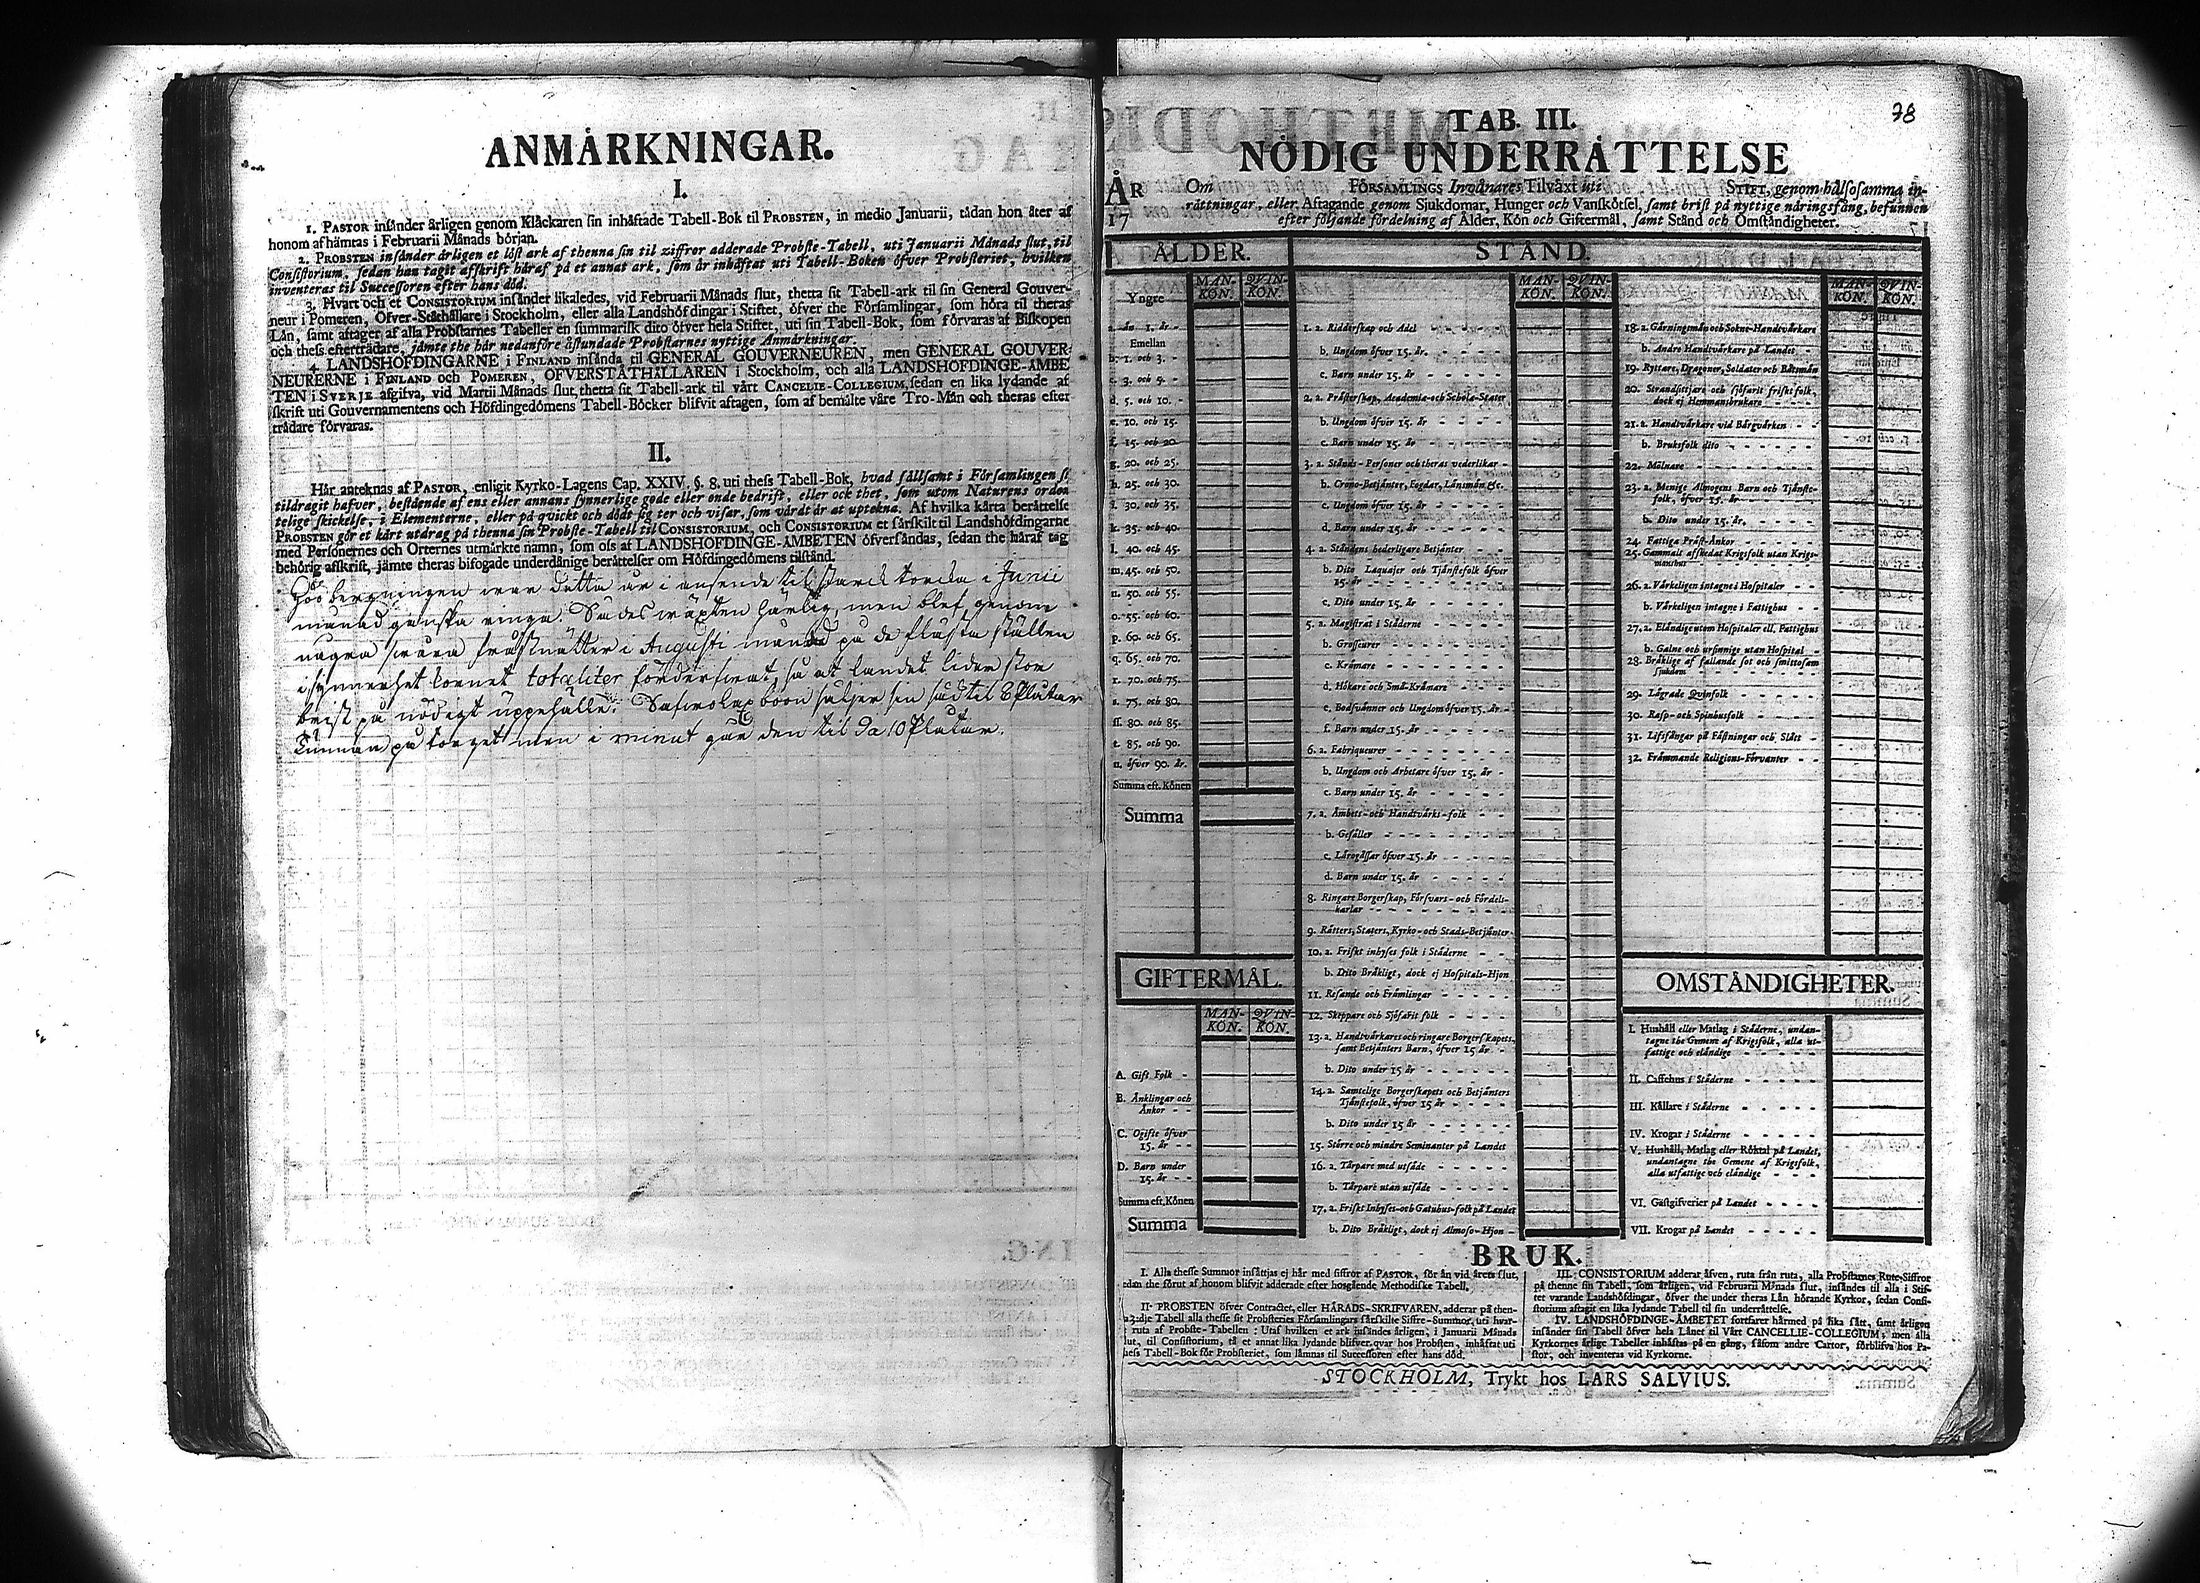 ANMÄRKNINGAR.
I.
1. PASTOR insänder årligen genom Klåckaren sin inhäftade Tabell-Bok til PROBSTEN, in medio Januarii, tådan hon åter af
honom afhämtas i Februarii Månads början.
2. PROBSTEN insänder årligen et löst ark af thenna sin til ziffror adderade Probste-Tabell, uti Januarii Månads slut, til
Consistorium, sedan han tagit afskrift häraf på et annat ark, som är inhäftat uti Tabell-Boken öfver Probsteriet, hvilken
inventeras til Successoren efter hans död.
3. Hvart och et CONSISTORIUM insänder likaledes, vid Februarii Månads slut, thetta sit Tabell-ark til sin General Gouver-
neur i Pomeren, Öfver-Ståthållare i Stockholm, eller alla Landshöfdingar i Stiftet, öfver the Församlingar, som höra til theras
Län, samt aftager af alla Probstarnes Tabeller en summarisk dito öfver hela Stiftet, uti sin Tabell-Bok, som förvaras af Biskopen
och thess efterträdare, jämte the här nedanföre åstundade Probstarnes nyttige Anmärkningar.
4. LANDSHÖFDINGARNE i FINLAND insända til GENERAL GOUVERNEUREN, men GENERAL GOUVER-
NEURERNE i FINLAND och POMEREN, ÖFVERSTÅTHÅLLAREN i Stockholm, och alla LANDSHÖFDINGE-ÄMBE
TEN i SVERJE afgifva, vid Martii Månads slut, thetta sit Tabell-ark til vårt CANCELIE-COLLEGIUM, sedan en lika lydande af
skrift uti Gouvernamentens och Höfdingedömens Tabell-Böcker blifvit aftagen, som af bemälte våre Tro-Män och theras efter
trädare förvaras.
II.
Här anteknas af PASTOR, enligit Kyrko-Lagens Cap. XXIV. §. 8. uti thess Tabell-Bok, hvad sällsamt i Församlingen si
tildragit hafver, bestående af ens eller annans synnerlige gode eller onde bedrift, eller ock thet, som utom Naturens orden
telige skickelse, i Elementerne, eller på qvickt och dödt sig ter och visar, som värdt är at uptekna. Af hvilka kårta berättelse
PROBSTEN gör et kårt utdrag på thenna sin Probste-Tabell til CONSISTORIUM, och CONSISTORIUM et särskilt til Landshöfdingarne
med Personernes och Orternes utmärkte namn, som oss af LANDSHÖFDINGE-ÄMBETEN öfversändas, sedan the häraf tag
behörig afskrift, jämte theras bifogade underdånige berättelser om Höfdingedömens tilstånd.
Höö bergningen war detta år i anseende til stark torcka i Junii
månad ganska ringa. Sädes wäxten härlig, men blef genom
några swåra frostnätter i Augusti månad på de flästa ställen
i synnerhet kornet totaliter förderfwat, så at landet lider stor
brist på nödigt uppehälle. boon säljer sin säd til 6 Platar
Tunnan på torget men i minut går den til 9 a 10 Platar.
78
TAB. III.
NÖDIG UNDERRÄTTELSE
ÅR Om FÖRSAMLINGS Invånares Tilväxt uti STIFT, genom hälsosamma in-
rättningar, eller Aftagande genom Sjukdomar, Hunger och Vanskötsel, samt brist på nyttige näringsfång, befunnen
17 efter följande fördelning af Ålder, Kön och Giftermål, samt Stånd och Omständigheter.
ÅLDER.
MAN-KÖN. QVIN-KÖN.
Yngre
a. än 1. år -
Emellan
b. 1. och 3. -
c. 3. och 5. -
d. 5. och 10. -
e. 10. och 15.
f. 15. och 20.
g. 20. och 25.
h. 25. och 30.
i. 30. och 35.
k. 35. och 40.
l. 40. och 45.
m. 45. och 50.
n. 50. och 55.
o. 55. och 60.
p. 60. och 65.
q. 65. och 70.
r. 70. och 75.
s. 75. och 80.
ss. 80. och 85.
t. 85. och 90.
u. öfver 90. år.
Summa eft. Könen
Summa
GIFTERMÅL.
MAN-KÖN. QVIN-KÖN.
A. Gift Folk -
B. Änklingar och
Änkor - -
C. Ogifte öfver
15. år - -
D. Barn under
15. år - -
Summa eft. Könen
Summa
STÅND.
MAN-KÖN. QVIN-KÖN.
1. a. Ridderskap och Adel
b. Ungdom öfver 15. år.
c. Barn under 15. år
2. a. Prästerskap, Academia-och Schola-Stater
b. Ungdom öfver 15. år
c. Barn under 15. år
3. a. Stånds-Personer och theras vederlikar
b. Crono-Betjänter, Fogdar, Länsmän &c.
c. Ungdom öfver 15. år
d. Barn under 15. år
4. a. Ståndens hederligare Betjänter
b. Dito Laquajer och Tjänstefolk öfver
15. år
c. Dito under 15. år
5. a. Magistrat i Städerne
b. Grosseurer
c. Krämare
d. Hökare och Små-Krämare
e. Bodsvänner och Ungdom öfver 15. år
f. Barn under 15. år
6. a. Fabriqueurer
b. Ungdom och Arbetare öfver 15. år
c. Barn under 15. år
7. a. Ämbets-och Handtvärks-folk
b. Gesäller
c. Lärogåssar öfver 15. år
d. Barn under 15. år
8. Ringare Borgerskap, Försvars-och Fördels-
karlar
9. Rätters, Staters, Kyrko-och Stads-Betjänter
10. a. Friskt inhyses folk i Städerne
b. Dito Bräkligt, dock ej Hospitals-Hjon
11. Resande och Främlingar
12. Skeppare och Sjöfarit folk
13. a. Handtvärkares och ringare Borgerskapets,
samt Betjänters Barn, öfver 15 år
b. Dito under 15 år
14. a. Samtelige Borgerskapets och Betjänters
Tjänstefolk, öfver 15 år
b. Dito under 15 år
15. Större och mindre Seminanter på Landet
16. a. Tärpare med utsäde
b. Tärpare utan utsäde
17. a. Friskt Inhyses-och Gatuhus-folk på Landet
b. Dito Bräkligt, dock ej Almoso-Hjon
MAN-KÖN. QVIN-KÖN.
18. a. Gärningsmän och Sokne-Handtvärkare
b. Andre Handtvärkare på Landet
19. Ryttare, Dragoner, Soldater och Båtsmän
20. Strandsittjare och sjöfarit friskt folk,
dock ej Hemmansbrukare
21. a. Handtvärkare vid Bärgvärken
b. Bruksfolk dito
22. Mölnare
23. a. Menige Almogens Barn och Tjänste-
folk, öfver 15. år
b. Dito under 15. år.
24. Fattiga Präst-Änkor
25. Gammalt afskedat Krigsfolk utan Krigs-
manshus
26. a. Värkeligen intagne i Hospitaler
b. Värkeligen intagne i Fattighus
27. a. Eländige utom Hospitaler ell. Fattighus
b. Galne och ursinnige utan Hospital
28. Bräklige af fallande sot och smittosam
sjukdom
29. Lägrade Qvinfolk
30. Rasp-och Spinhusfolk
31. Lifsfångar på Fästningar och Slått
32. Främmande Religions-Förvanter
OMSTÄNDIGHETER.
I. Hushåll eller Matlag i Städerne, undan-
tagne the Gemene af Krigsfolk, alla ut-
fattige och eländige
II. Caffehus i Städerne
III. Källare i Städerne
IV. Krogar i Städerne
V. Hushåll, Matlag eller Röktal på Landet,
undantagne the Gemene af Krigsfolk,
alla utfattige och eländige
VI. Gästgifverier på Landet
VII. Krogar på Landet
BRUK.
I. Alla thesse Summor insättjas ej här med siffror af PASTOR, för än vid årets slut,
sedan the förut af honom blifvit adderade efter hosgående Methodiske Tabell.
II. PROBSTEN öfver Contractet, eller HÄRADS-SKRIFVAREN, adderar på then-
na 3:dje Tabell alla thesse sit Probsteries Församlingars särskilte Siffre-Summor, uti hvar-
ruta af Probste-Tabellen: Utaf hvilken et ark insändes årligen, i Januarii Månads
slut, til Consistorium, tå et annat lika lydande blifver qvar hos Probsten, inhäftat uti
thess Tabell-Bok för Probsteriet, som lämnas til Successoren efter hans död.
III. CONSISTORIUM adderar äfven, ruta från ruta, alla Probstarnes Rute-Siffror
på thenne sin Tabell, som årligen, vid Februarii Månads slut, insändes til alla i Stif-
tet varande Landshöfdingar, öfver the under theras Län hörande Kyrkor, sedan Consi-
storium aftagit en lika lydande Tabell til sin underrättelse.
IV. LANDSHÖFDINGE-ÄMBETET fortfarer härmed på lika sätt, samt årligen
insänder sin Tabell öfver hela Länet til Vårt CANCELLIE-COLLEGIUM; men alla
Kyrkornes årlige Tabeller inhäftas på en gång, såsom andre Cartor, förblifva hos Pa-
stor, och inventeras vid Kyrkorne.
STOCKHOLM, Trykt hos LARS SALVIUS.